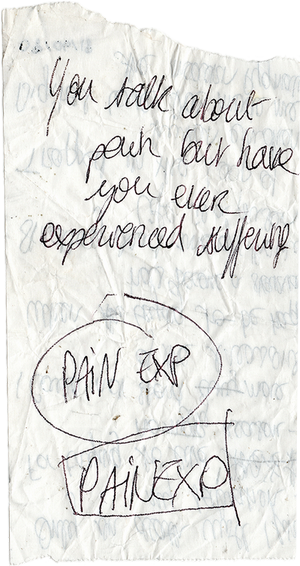 You talk about
pain but have
you ever
experienced suffering
PAIN EXP
PAINEXP